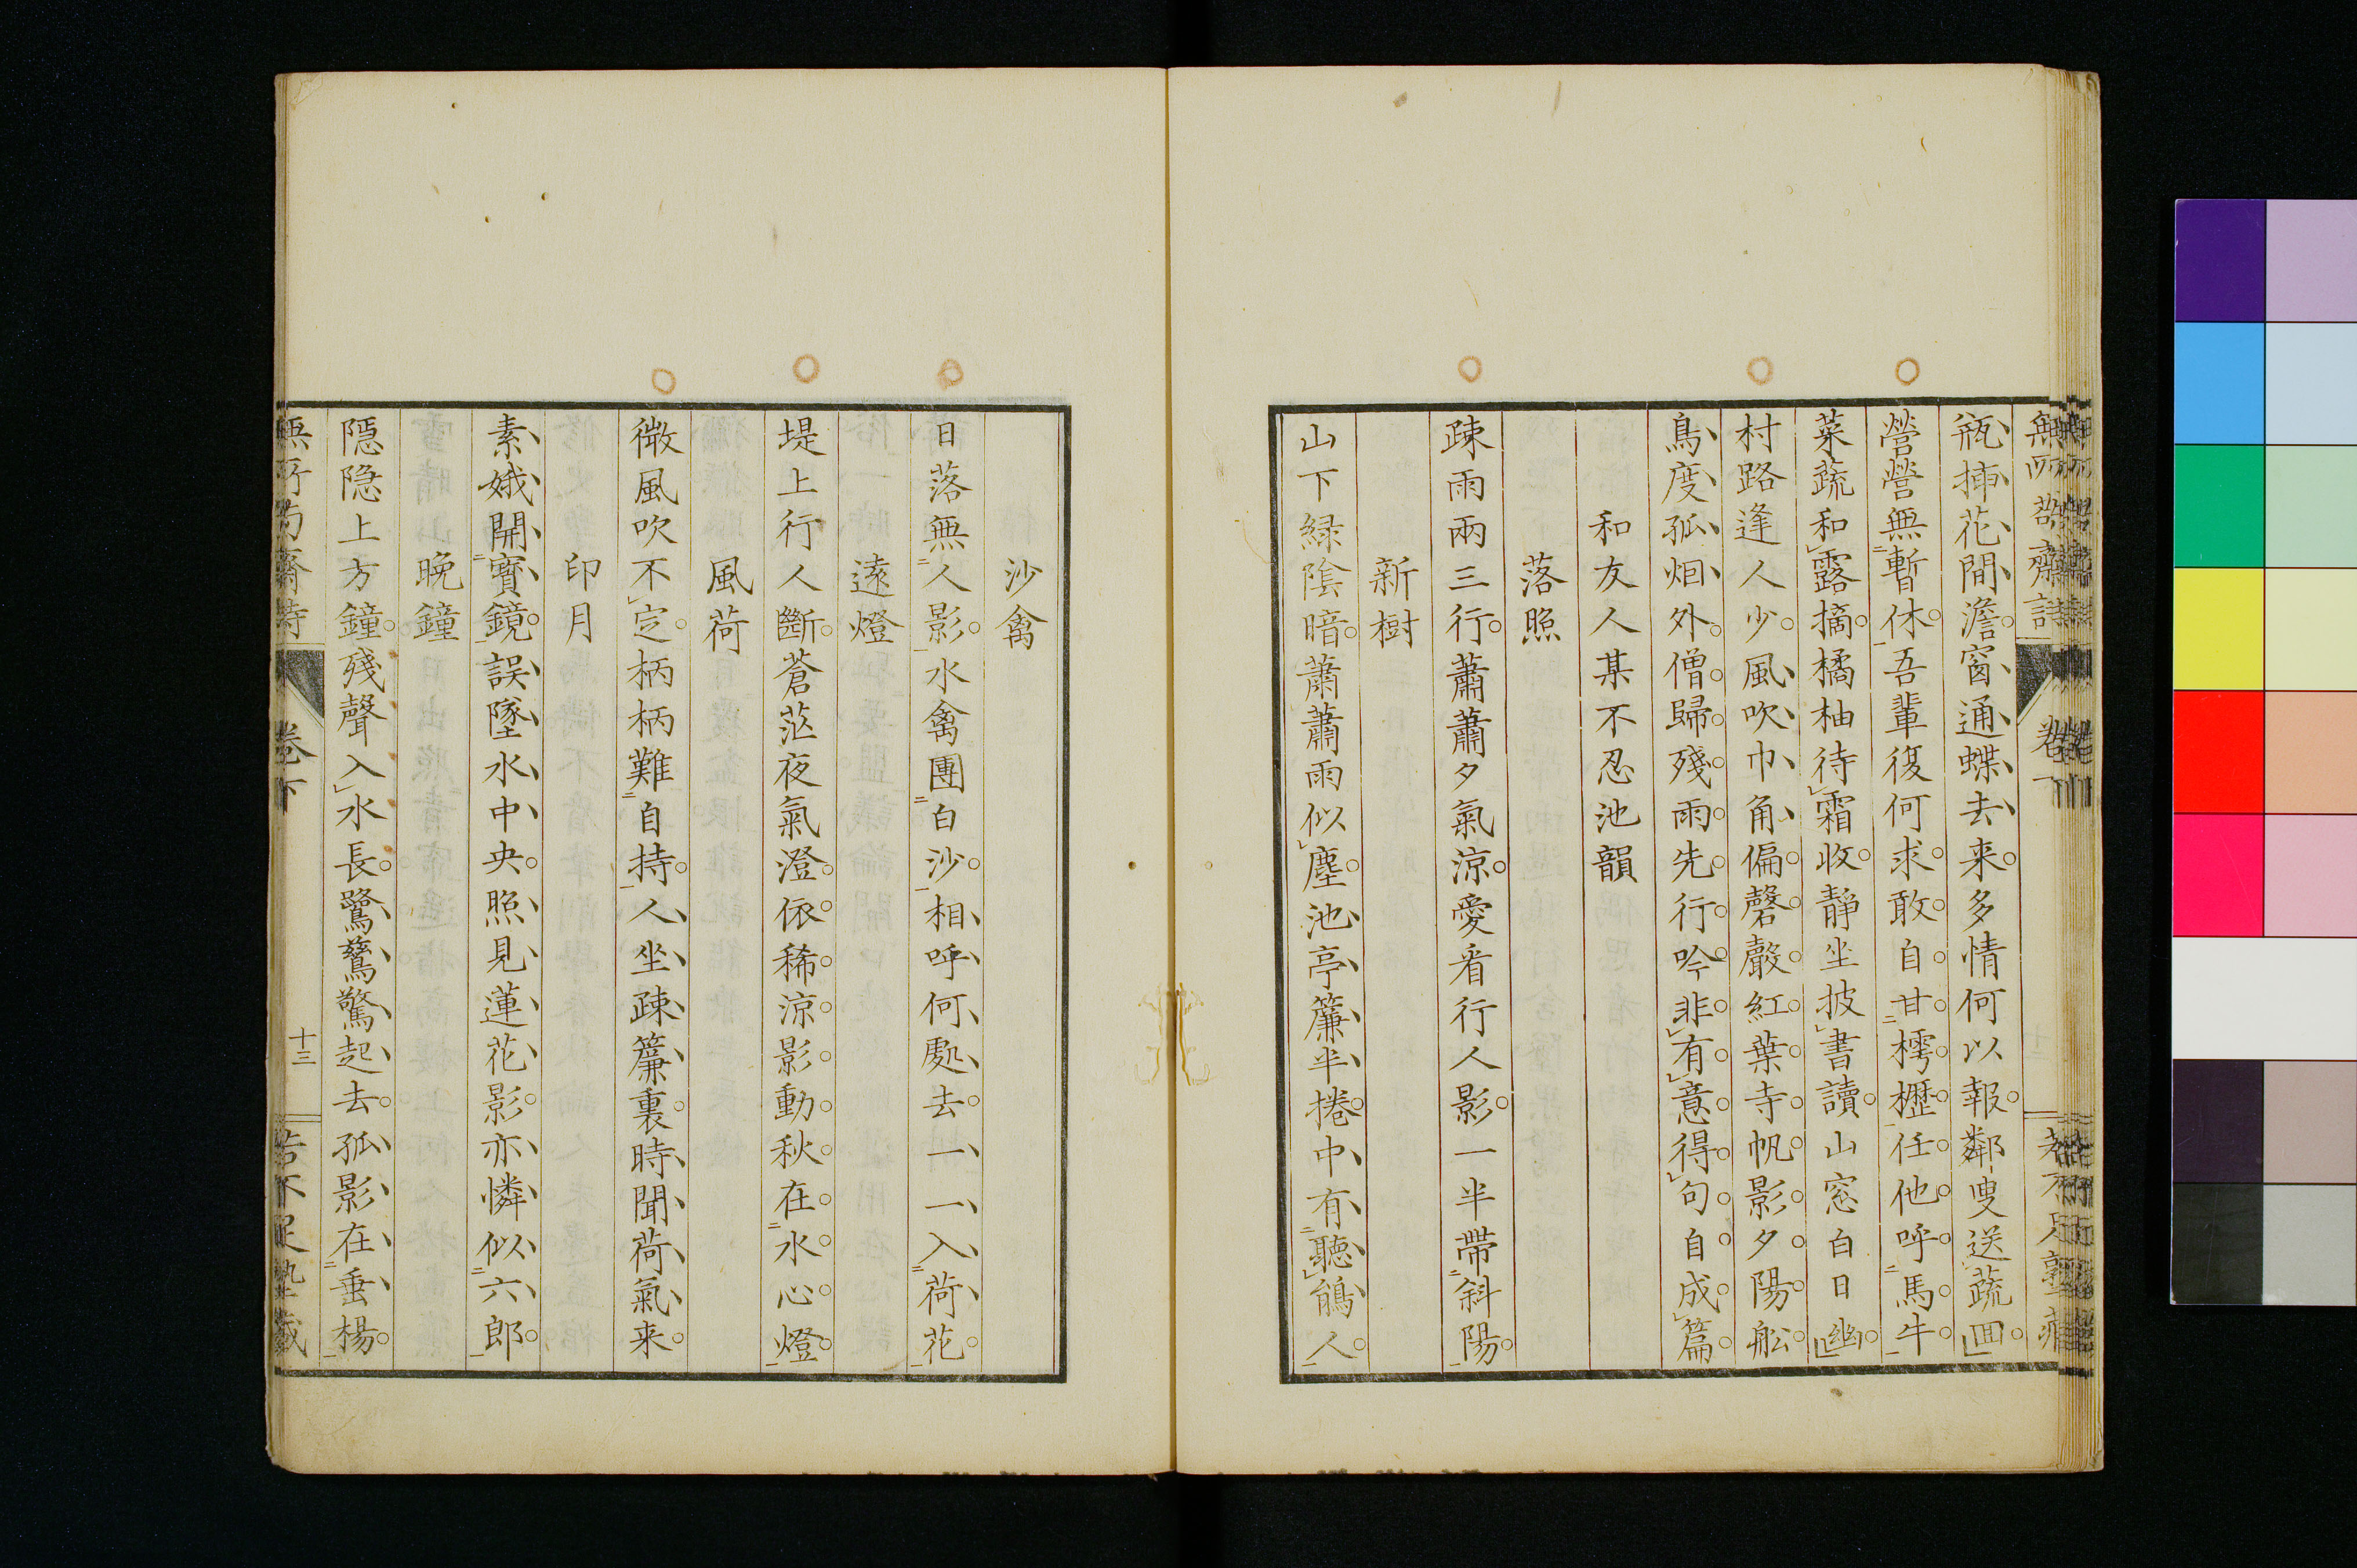 瓶揷花間澹窗通蝶去来多情何以報鄰叟送蔬回
營營無暫休吾輩復何求敢自甘樗櫪任他呼馬牛
菜蔬和露摘橘柚待霜收靜坐披書讀山窓白日幽
村路逢人少風吹巾角偏磬聲紅葉寺帆影夕陽舩
鳥度孤烟外僧歸殘雨先行吟非有意得句自成篇
和友人某不忍池韻
落照
疎雨兩三行蕭蕭夕氣涼愛看行人影一半帶斜陽
新樹
山下緑陰暗蕭蕭雨似塵池亭簾半捲中有聽鵑人
沙禽
日落無人影水禽團白沙相呼何處去一一入荷花
遠燈
堤上行人斷蒼茫夜氣澄依稀涼影動秋在水心燈
風荷
微風吹不定柄柄難自持人坐疎簾裏時聞荷氣来
印月
素娥開寶鏡誤墜水中央照見蓮花影亦憐似六郎
晩鐘
隱隐上方鐘殘聲入水長鷺鷥驚起去孤影在垂楊
卷下
十三